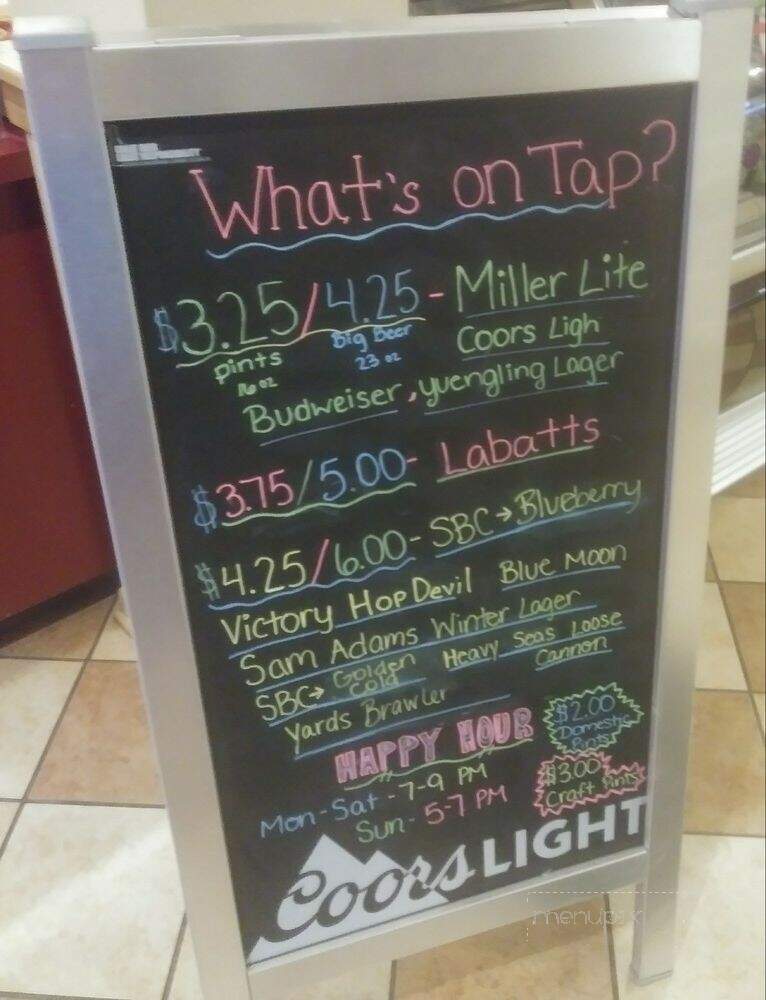 What's on Tap?
$3.25/4.25 - Miller Lite
pints Big Beer Coors Ligh
16 oz 23 oz
Budweiser, yuengling Lager
$3.75/5.00- Labatts
$4.25/6.00- SBC→Blueberry
Victory HopDevil Blue Moon
Sam Adams Winter Lager
SBC→ Golden Cold Heavy Seas Loose Cannon
Yards Brawler
HAPPY HOUR
$2.00 Domestic Pints
Mon-Sat - 7-9 PM
$3.00 Craft Pints
Sun- 5-7 PM
Coors LIGHT
menupix